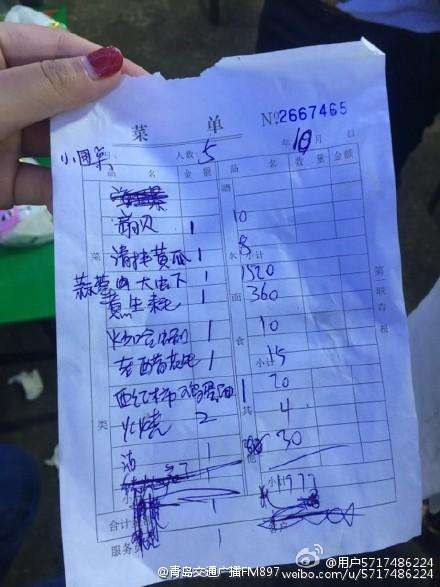 菜 单
№2667465
小圆桌
人数 5
年 10 月 日
品 名 金 额 品 名 数 量 金 额
扇贝 1 10
清拌黄瓜 1 8
小计
蒜蓉 大虾 1 1520
1 360
炒蛤蜊 1 10
老醋 1 15
小计
西红柿鸡蛋 1 20
火烧 2 4
酒 1 30
小计 1977
菜
类
酒
水
面
食
其
他
第一联存根
合计 1
服务员 1
客户
@青岛交通广播FM897
@用户5717486224
weibo.com/u/5717486224